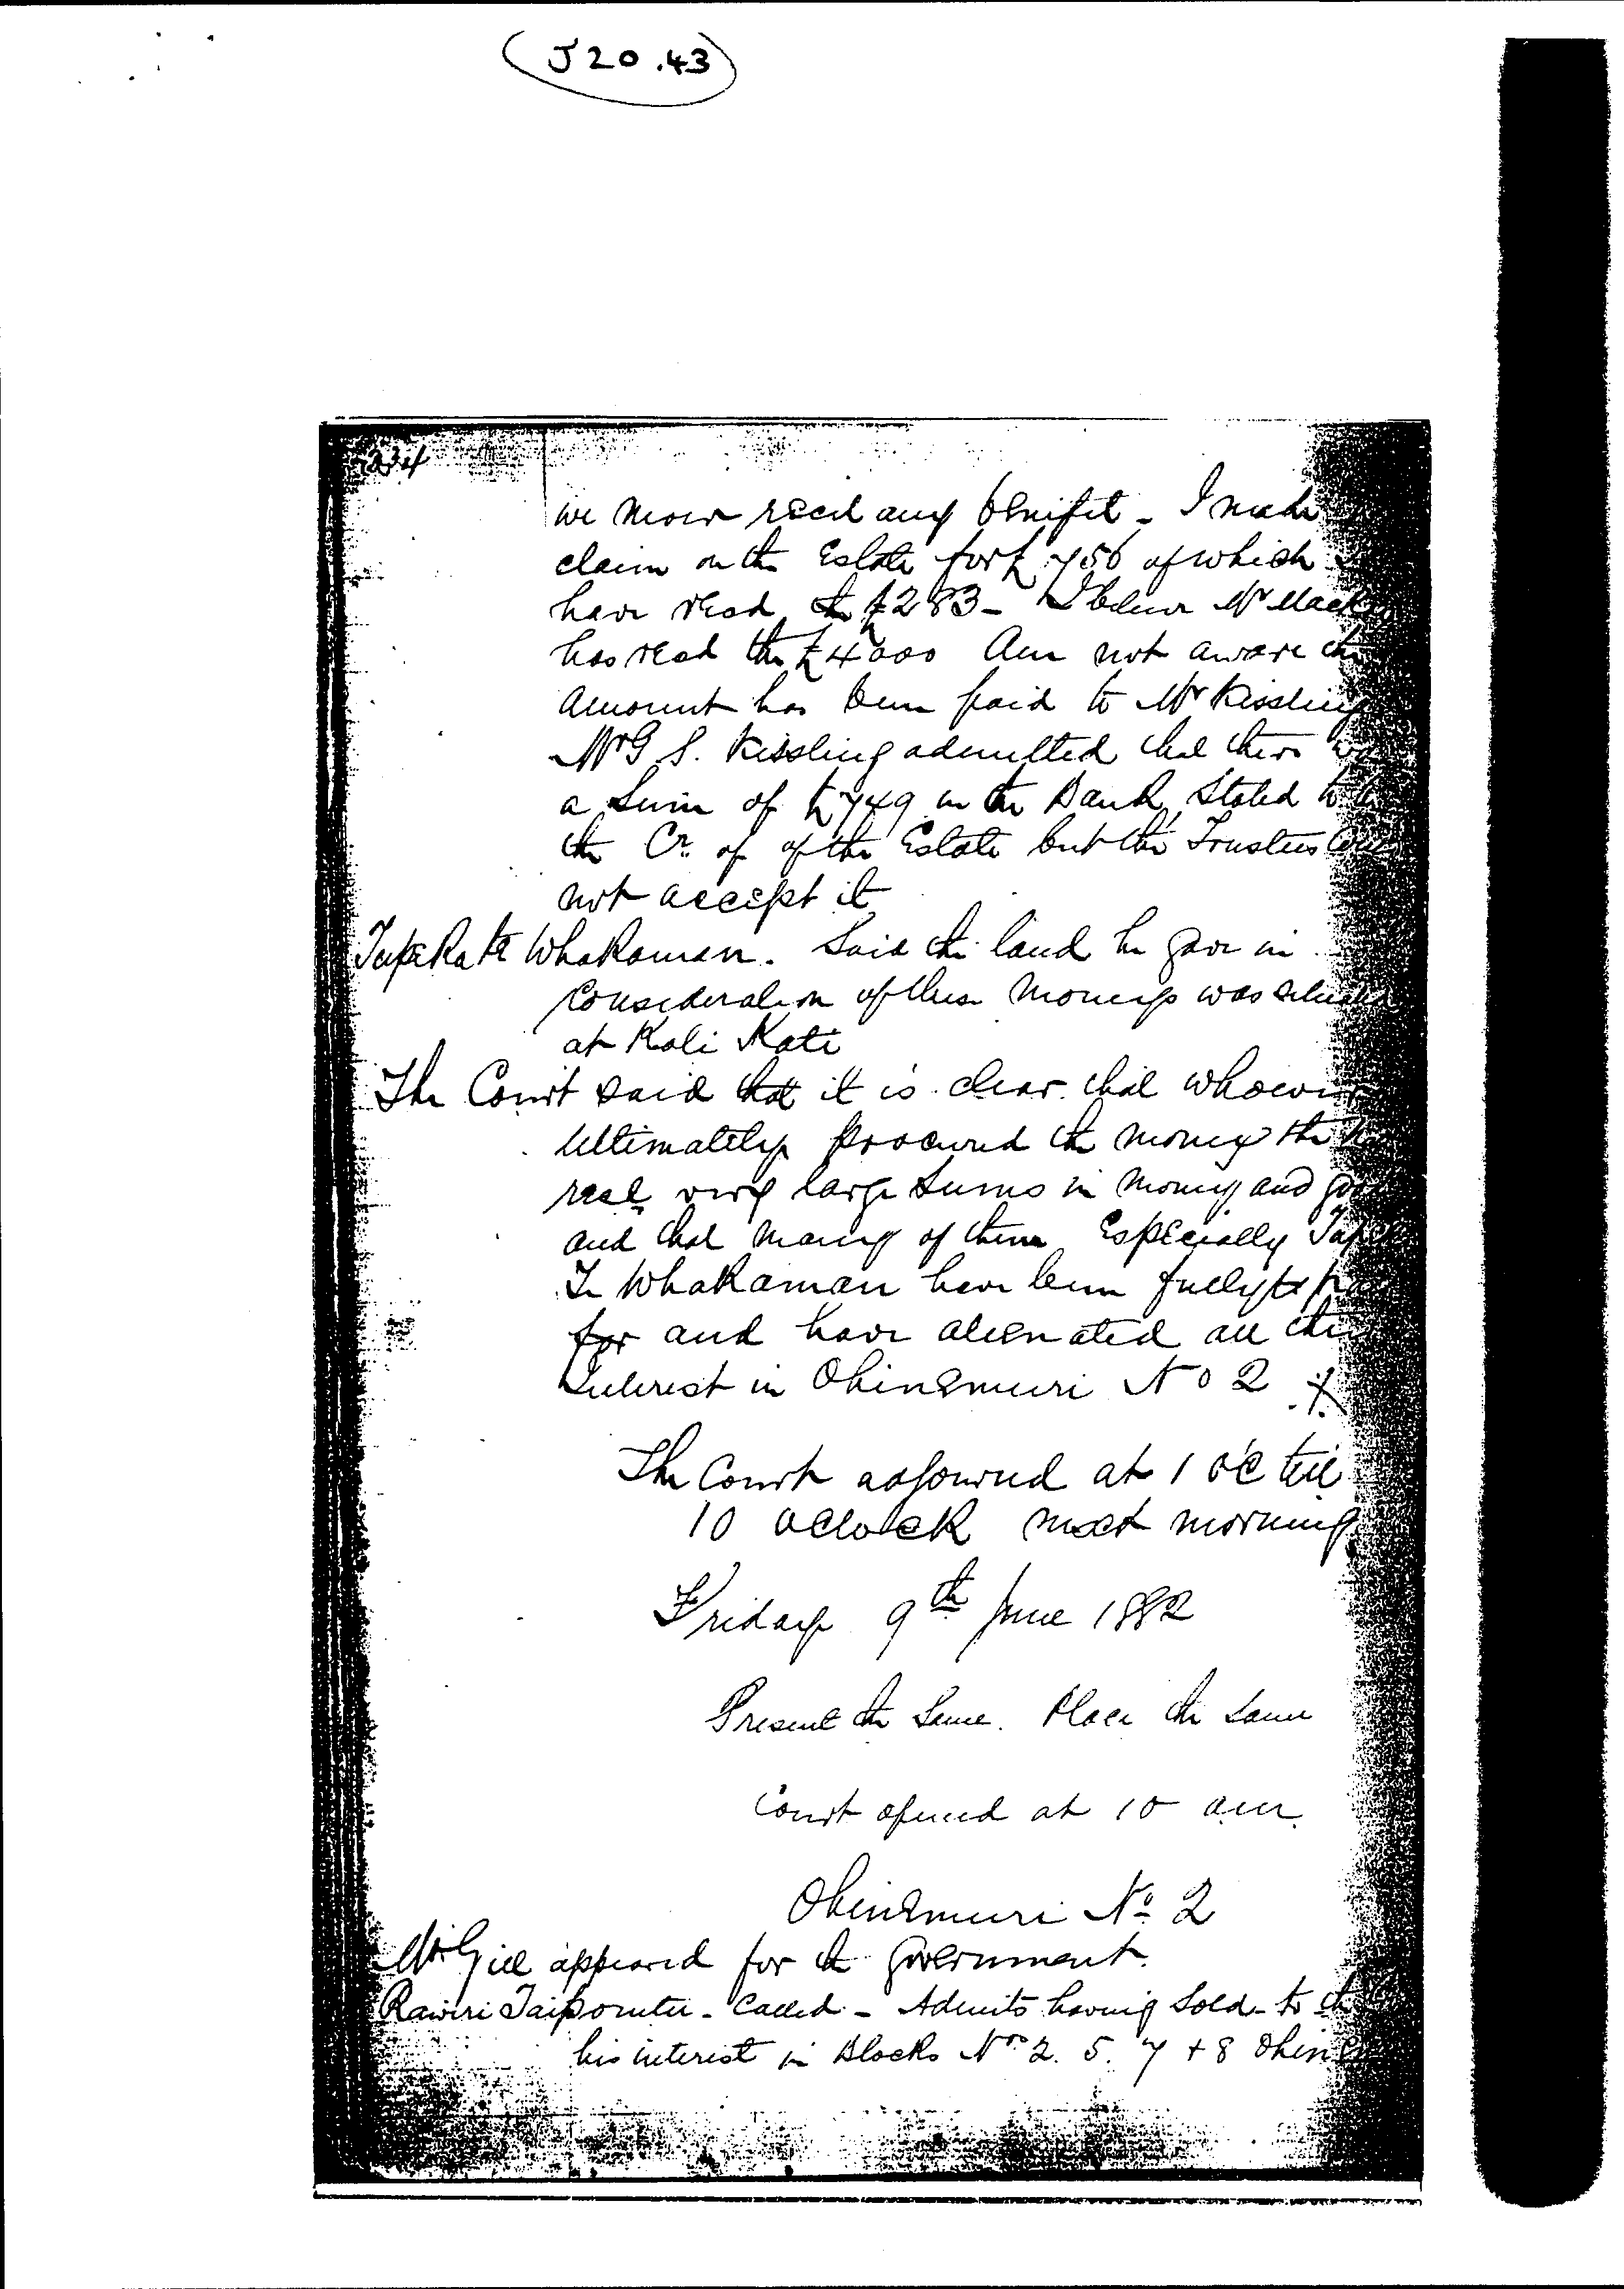 J20.43
we never recd any benifit - I made
claim on the Estate for £756 of which
have recd £283 - I believe Mr
has recd the £4000 Am not aware
amount has been paid to Mr Kissling
Mr G S. Kissling admitted that there
a sum of £749 in the Bank, stated to
the Cr. of of the Estate but the Trustees
not accept it
Whakamau. Said the land he gave in
consideration of these moneys was
at Kati Kati
The Court said that it is clear that
ultimately procured the money the
recd very large sums in money and
and that many of them Especially
Te Whakamau have been fully
for and have alienated all
Interest in Ohinemuri No 2
The Court adjourned at 1 o'c till
10 oClock next morning
Friday 9th June 1882
Present the Same. Place the Same
Court opened at 10 am.
Ohinemuri No. 2
Mr Gill appeared for the Government.
Rawiri - Called - Admits having Sold to
his interest in Blocks Nos 2. 5. 7 + 8